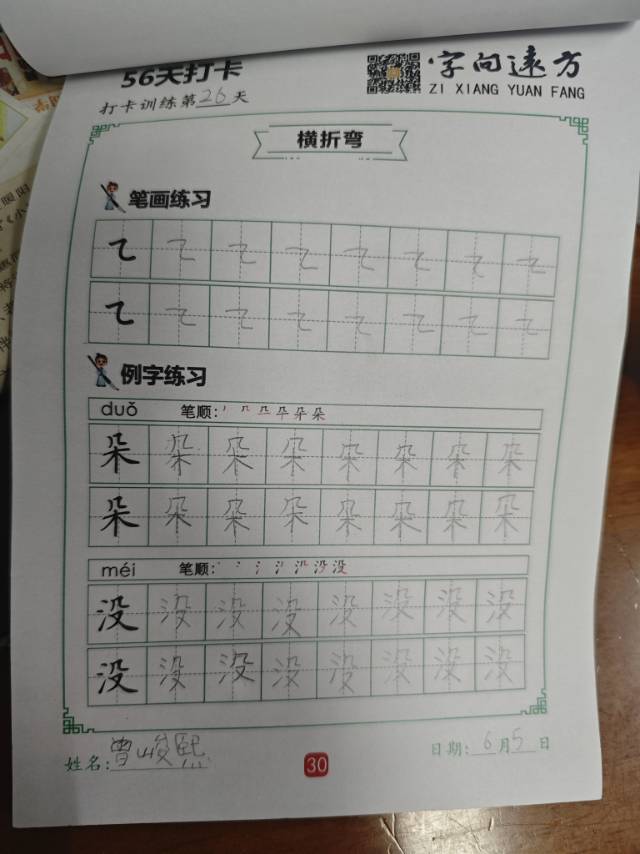 56天打卡
字向远方
ZI XIANG YUAN FANG
打卡训练第26天
横折弯
笔画练习
例字练习
duǒ 笔顺:
朵 朵 朵 朵 朵 朵 朵 朵
朵 朵 朵 朵 朵 朵 朵 朵
méi 笔顺:
没 没 没 没 没 没 没 没
没 没 没 没 没 没 没 没
姓名:曾峻熙
30
日期:6月5日